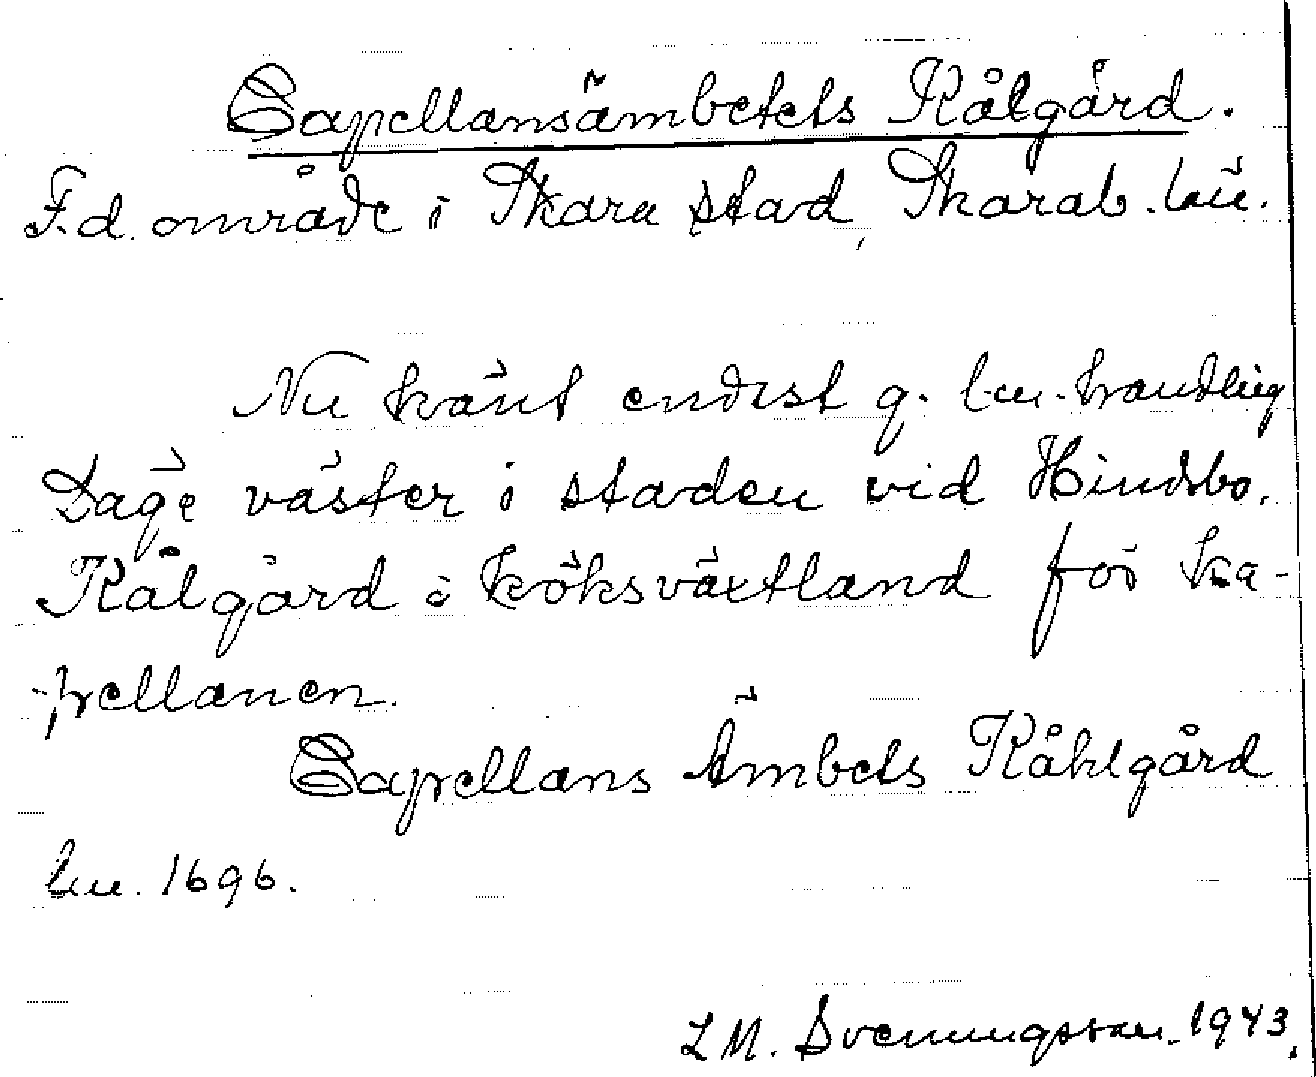 Capellansämbetets Kålgård.
F.d. område i Skara stad, Skarab. län.
Nu känt endast g. lm. handling
Läge väster i staden vid Hindsbo.
Kålgård = köksväxtland för ka-
-pellanen.
Capellans Ämbets Kåhlgård
lm. 1696.
L M. Svenungsson. 1943.